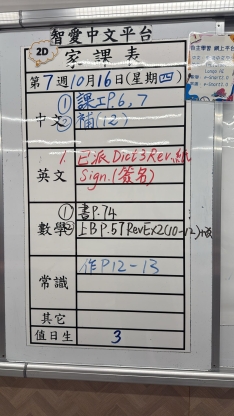 智愛中文平台
2D 家課表
第7週10月16日(星期四)
中文 ①課工P.6,7
②補(12)
英文 1. 已派Dict3Rev.紙
Sign.(簽名)
數學 ①書P.74
②上BP.57RevEx2(10-12)
常識 作P12-13
其它
值日生 3
自主學習 網上平台